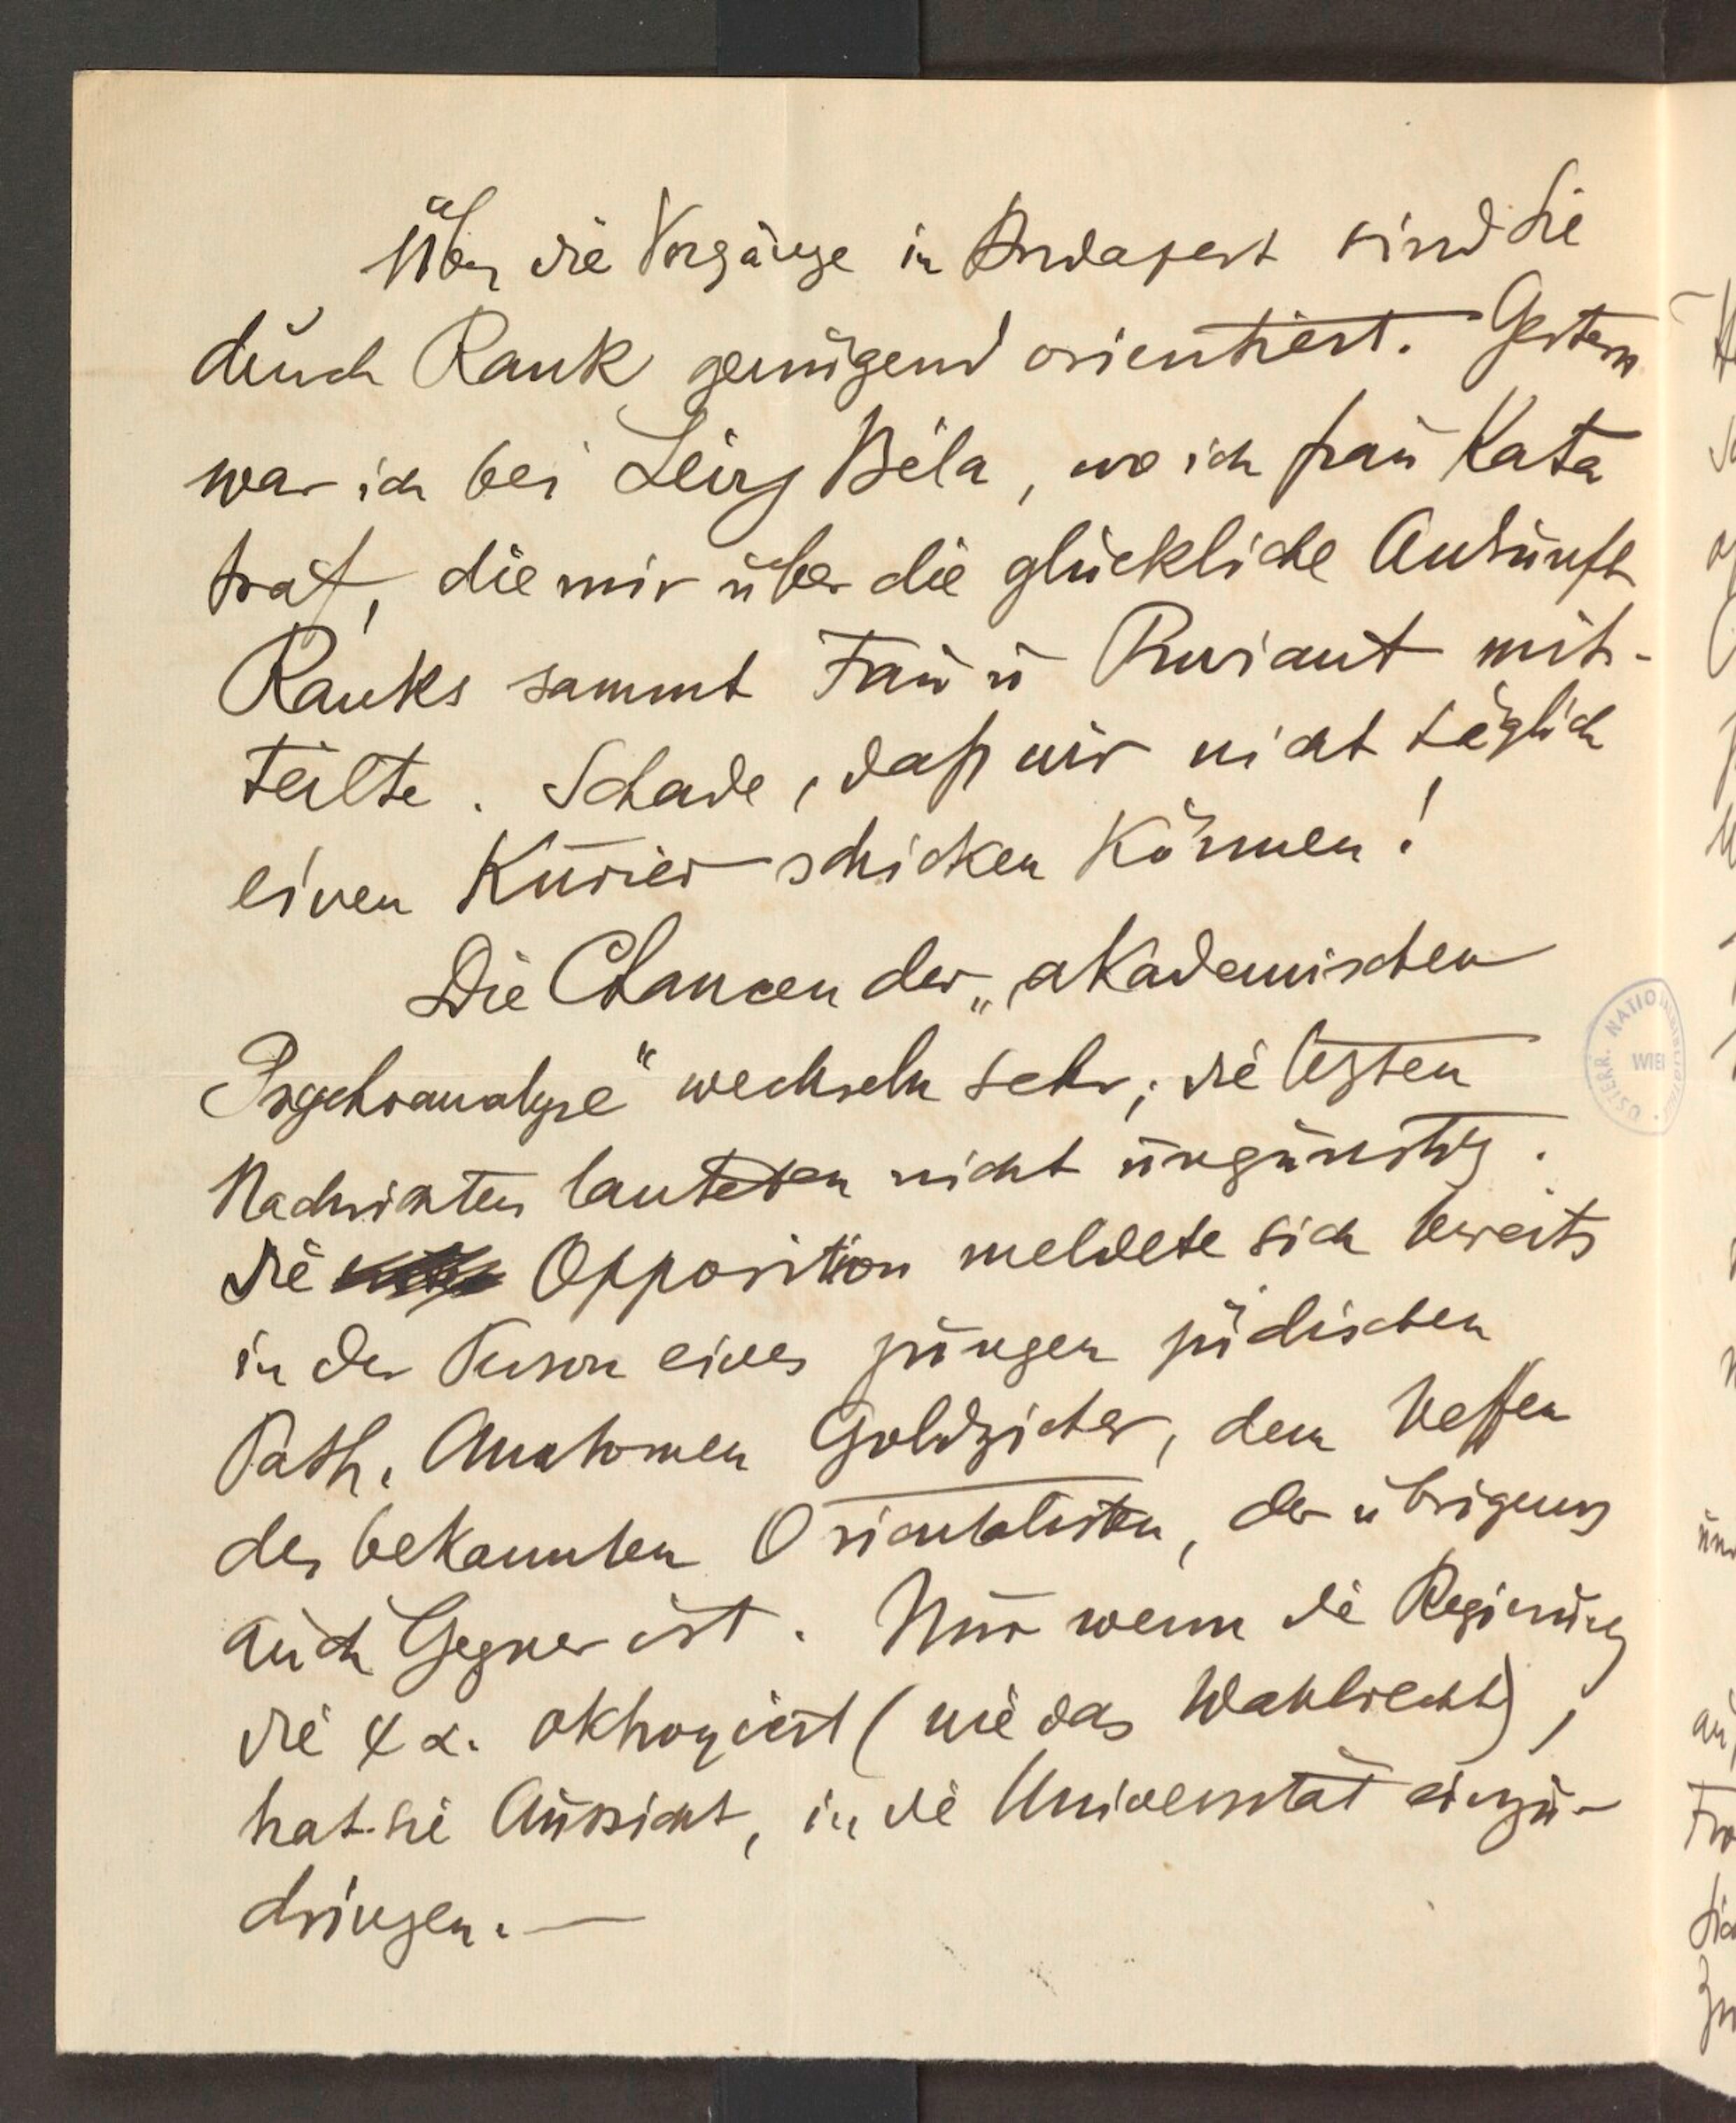 Über die Vorgänge in Budapest sind Sie
durch Rank genügend orientiert. Gestern
war ich bei Béla, wo ich frau Kata
traf, die mir über die glückliche Ankunft
Ranks sammt Frau u Proviant mit-
teilte. Schade, daß wir nicht täglich
einen Kurier schicken können!
Die Chancen der „akademischen
Psychoanalyse“ wechseln sehr; die letzten
Nachrichten lauteten nicht ungünstig.
die Opposition meldete sich bereits
in der Person eines jungen jüdischen
Path. Anatomen Goldzieher, dem Neffen
des bekannten Orientalisten, der übrigens
auch Gegner ist. Nur wenn die Regierung
die ΨΑ. oktroyiert (wie das Wahlrecht),
hat sie Aussicht, in die Universität einzu-
dringen. —
ÖSTERR. NATIO
WIE